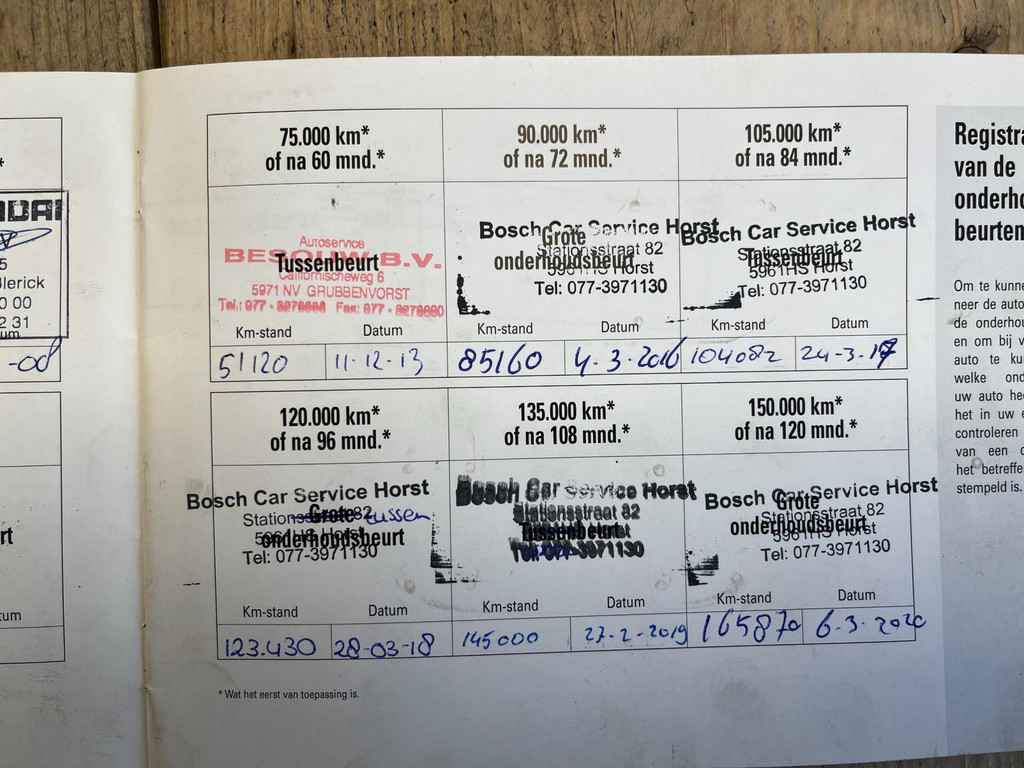 *
DAI
5
lerick
0 00
2 31
um
-08
rt
tum
75.000 km*
of na 60 mnd.*
Autoservice
BESOUW B.V.
Tussenbeurt
Californischeweg 6
5971 NV GRUBBENVORST
Km-stand Datum
51120 11-12-13
90.000 km*
of na 72 mnd.*
Bosch Car Service Horst
Grote
Stationsstraat 82
onderhoudsbeurt
5961HS Horst
Tel: 077-3971130
Km-stand Datum
85160 4-3-2016
105.000 km*
of na 84 mnd.*
Bosch Car Service Horst
Stationsstraat 82
Tussenbeurt
5961HS Horst
Tel: 077-3971130
Km-stand Datum
104082 24-3-17
120.000 km*
of na 96 mnd.*
Bosch Car Service Horst
Grote tussen
onderhoudsbeurt
Tel: 077-3971130
Km-stand Datum
123.430 28-03-18
135.000 km*
of na 108 mnd.*
Bosch Car Service Horst
Stationsstraat 82
Tussenbeurt
Tel: 077-3971130
Km-stand Datum
145000 27-2-2019
150.000 km*
of na 120 mnd.*
Bosch Car Service Horst
Grote
Stationsstraat 82
onderhoudsbeurt
5961HS Horst
Tel: 077-3971130
Km-stand Datum
165870 6-3-2020
* Wat het eerst van toepassing is.
Registra
van de
onderho
beurten
Om te kunne
neer de auto
de onderhou
en om bij v
auto te ku
welke ond
uw auto hee
het in uw e
controleren
van een d
het betreffe
stempeld is.